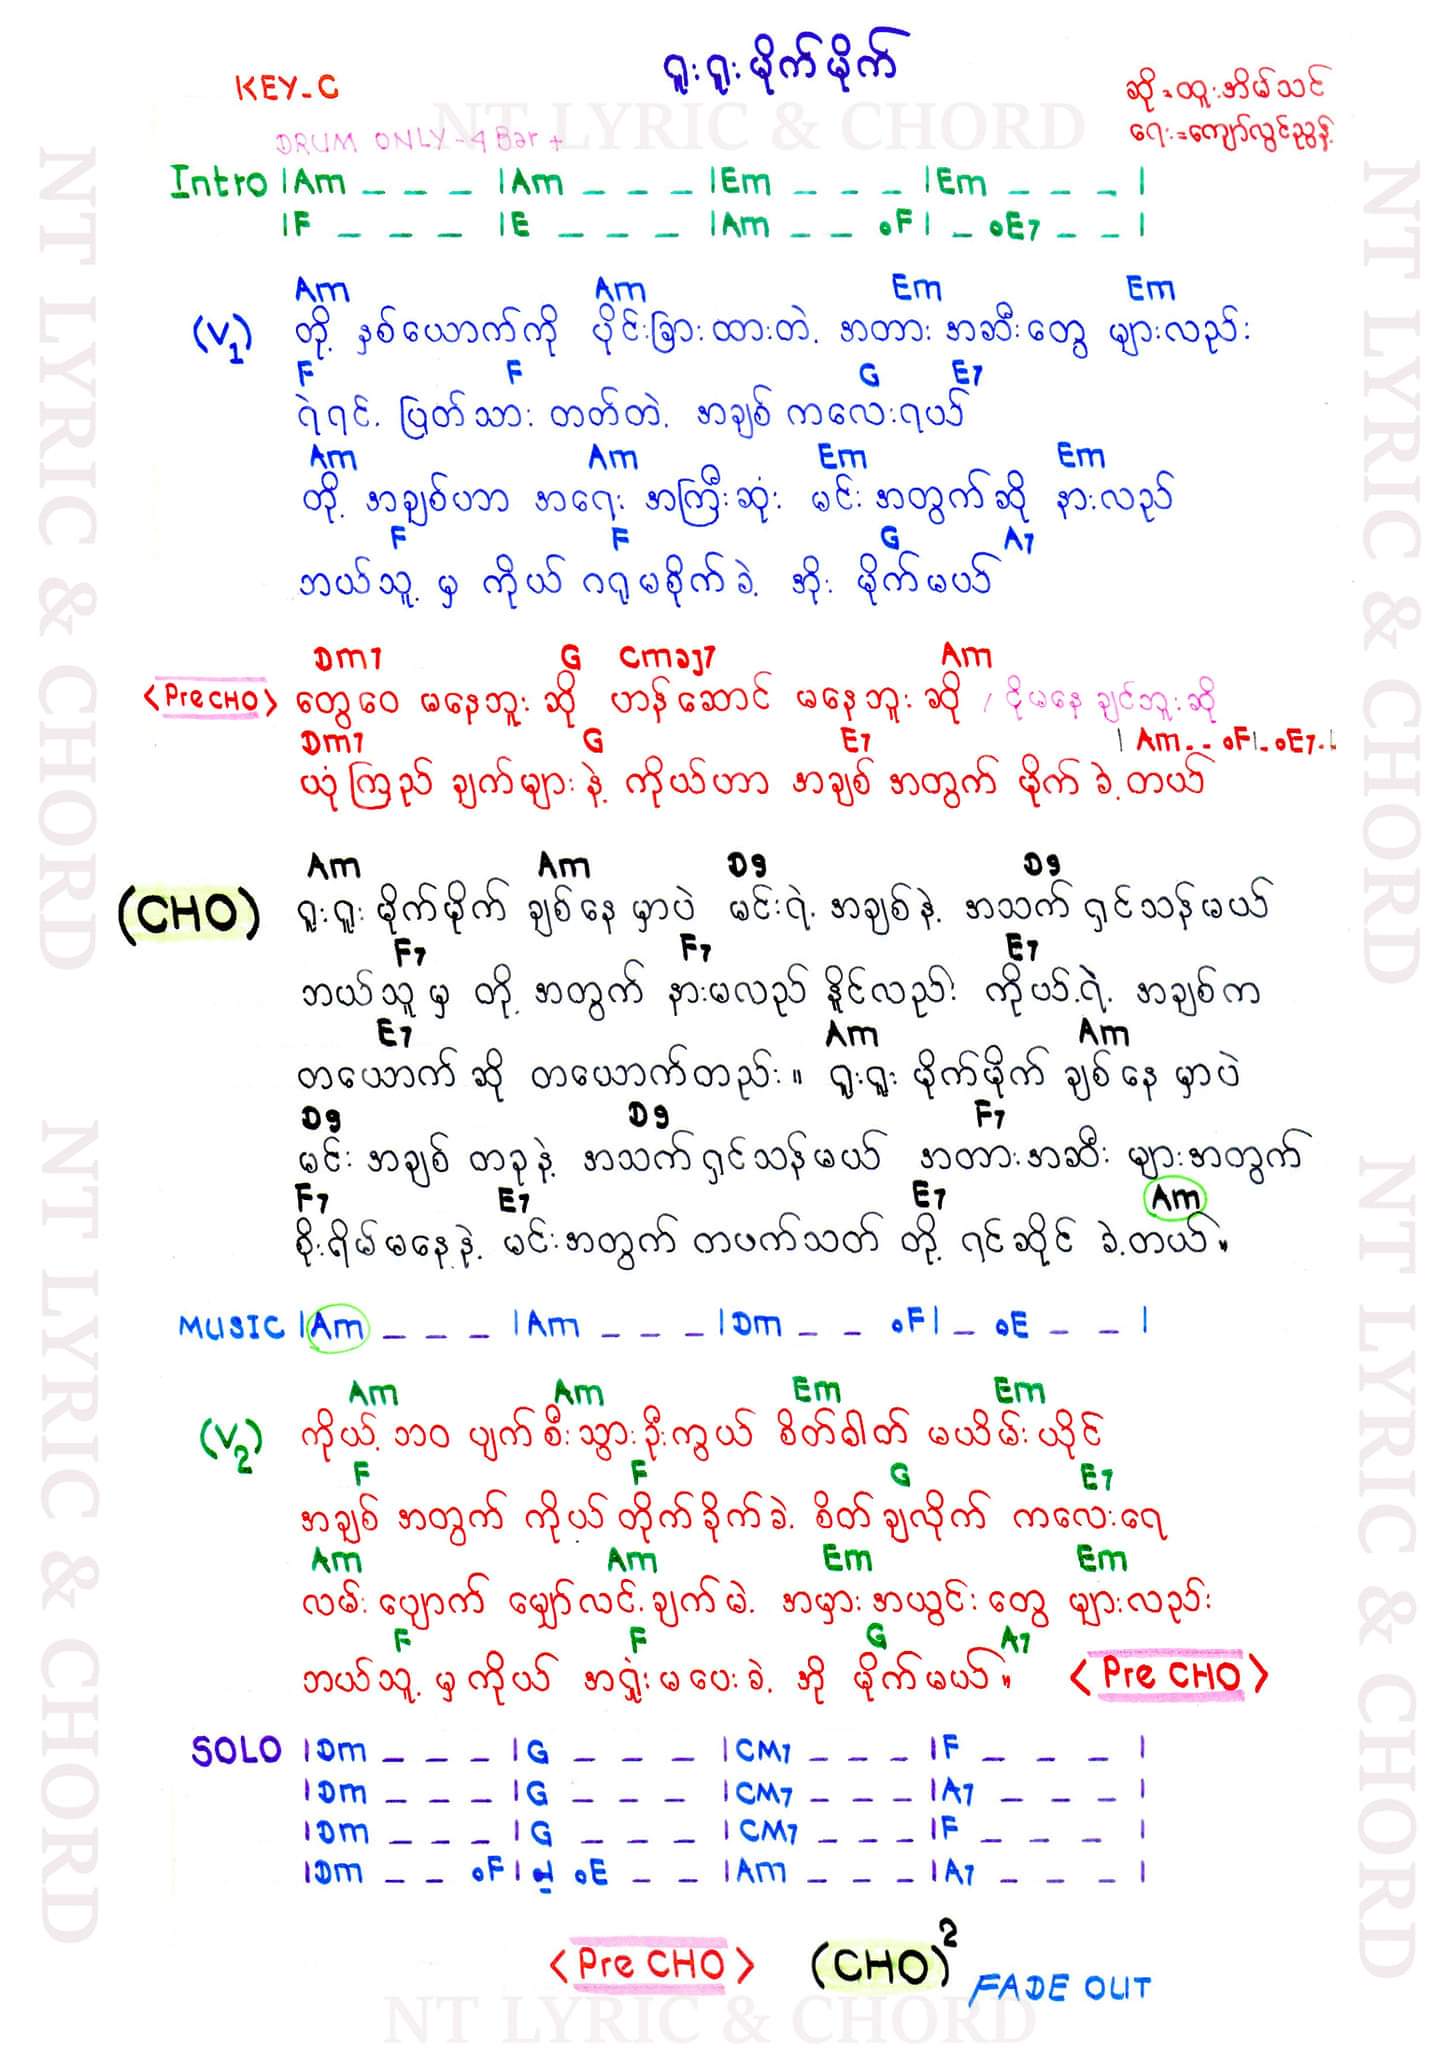 ရူးရူးမိုက်မိုက်
KEY-C
ဆို=ထူးအိမ်သင်
ရေး=ကျော်လွင်ညွန့်
NT LYRIC & CHORD
DRUM ONLY-4Bar+
Intro |Am _ _ _ |Am _ _ _ |Em _ _ _ |Em _ _ _ |
|F _ _ _ |E _ _ _ |Am _ _ •F| _ •E7 _ _ |
Am Am Em Em
(V1) တို့ နှစ်ယောက်ကို ပိုင်းခြားထားတဲ့ အတားအဆီးတွေ များလည်း
F F G E7
ရဲရင့် ဖြတ်သား တတ်တဲ့ အချစ် ကလေးရယ်
Am Am Em Em
တို့ အချစ်ဟာ အရေး အကြီးဆုံး မင်း အတွက်ဆို နားလည်
F F G A7
ဘယ်သူ့ မှ ကိုယ် ဂရုမစိုက်ခဲ့ အိုး မိုက်မယ်
Dm7 G Cmaj7 Am
<Pre CHO> တွေဝေ မနေဘူး ဆို ဟန်ဆောင် မနေဘူး ဆို / ငိုမနေ ချင်ဘူးဆို
Dm7 G E7 | Am - - •F| - •E7 - |
ယုံကြည် ချက်များ နဲ့ ကိုယ်ဟာ အချစ် အတွက် မိုက် ခဲ့တယ်
Am Am D9 D9
(CHO) ရူးရူး မိုက်မိုက် ချစ်နေ မှာပဲ မင်းရဲ့ အချစ်နဲ့ အသက် ရှင်သန်မယ်
F7 F7 E7
ဘယ်သူ မှ တို့ အတွက် နားမလည် နိုင်လည်း ကိုယ့်ရဲ့ အချစ်က
E7 Am Am
တယောက် ဆို တယောက်တည်း။ ရူးရူး မိုက်မိုက် ချစ်နေ မှာပဲ
D9 D9 F7
မင်း အချစ် တခုနဲ့ အသက်ရှင်သန်မယ် အတားအဆီး များအတွက်
F7 E7 E7 Am
စိုးရိမ်မနေနဲ့ မင်းအတွက် တဖက်သတ် တို့ ရင်ဆိုင် ခဲ့တယ်။
MUSIC |Am _ _ _ |Am _ _ _ |Dm _ _ •F| _ •E _ _ |
Am Am Em Em
(V2) ကိုယ့် ဘဝ ပျက်စီးသွားဦးကွယ် စိတ်ဓါတ် မယိမ်းယိုင်
F F G E7
အချစ် အတွက် ကိုယ် တိုက်ခိုက်ခဲ့ စိတ်ချလိုက် ကလေးရေ
Am Am Em Em
လမ်း ပျောက် မျှော်လင့်ချက်မဲ့ အမှားအယွင်းတွေ များလည်း
F F G A7
ဘယ်သူ့ မှ ကိုယ် အရှုံးမပေးခဲ့ အို မိုက်မယ်။ <Pre CHO>
SOLO |Dm _ _ _ |G _ _ _ |CM7 _ _ _ |F _ _ _ |
|Dm _ _ _ |G _ _ _ |CM7 _ _ _ |A7 _ _ _ |
|Dm _ _ _ |G _ _ _ |CM7 _ _ _ |F _ _ _ |
|Dm _ _ •F| _ •E _ _ |Am _ _ _ |A7 _ _ _ |
<Pre CHO> (CHO)2
FADE OUT
NT LYRIC & CHORD
NT LYRIC & CHORD
NT LYRIC & CHORD
NT LYRIC & CHORD
NT LYRIC & CHORD